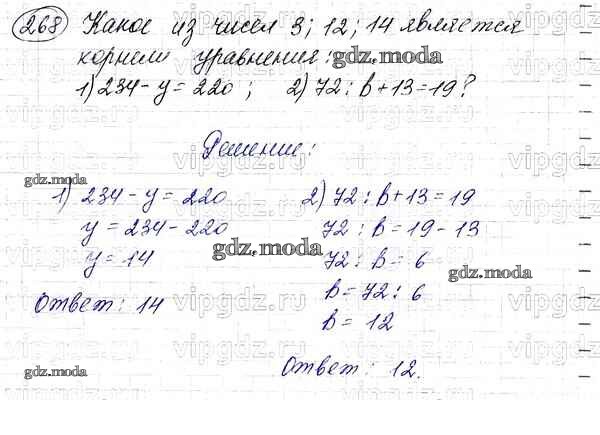 268 Какое из чисел 3; 12; 14 является
корнем уравнения:
1) 234 - y = 220 ; 2) 72 : b + 13 = 19?
Решение:
1) 234 - y = 220
y = 234 - 220
y = 14
Ответ: 14
2) 72 : b + 13 = 19
72 : b = 19 - 13
72 : b = 6
b = 72 : 6
b = 12
Ответ: 12.
gdz.moda
gdz.moda
gdz.moda
gdz.moda
gdz.moda
vipgdz.ru